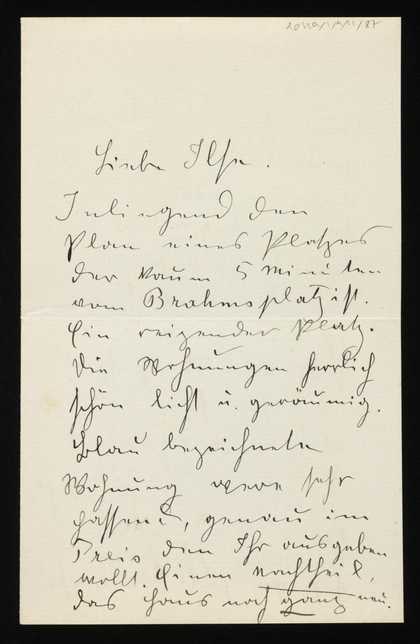 Liebe Ilse.
Inliegend den
Plan eines Platzes
der kaum 5 Minuten
vom Brahmsplatz ist.
Ein reizender Platz.
Die Wohnungen herrlich
schön licht u. geräumig.
Blau bezeichnete
Wohnung were sehr
passend, genau im
Preis den Ihr ausgeben
wollt. Einen Nachtheil,
das Haus noch ganz neu.